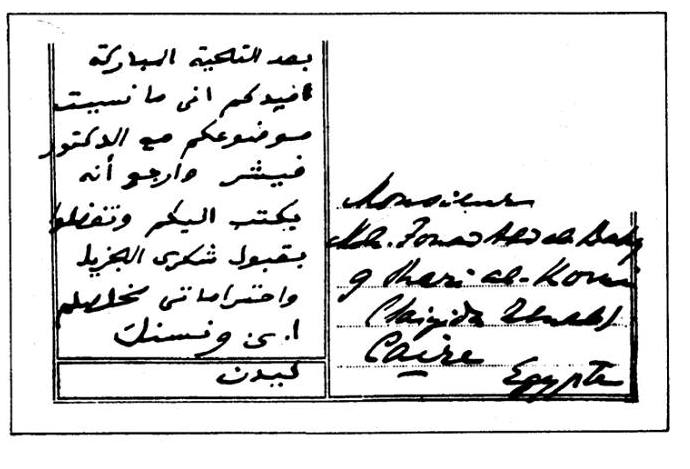 بعد التحية المباركة
افيدكم انى ما نسيت
موضوعكم مع الدكتور
فيشر وارجو أنه
يكتب اليكم وتفضلوا
بقبول شكرى الجزيل
واحتراماتى مخلصكم
ا. ى. ونسنك
ليدن
Monsieur
Moh. Fouad Abd al-Baky
9 Shari al-Komi
(Saiyida Zainab)
Caire
Egypte